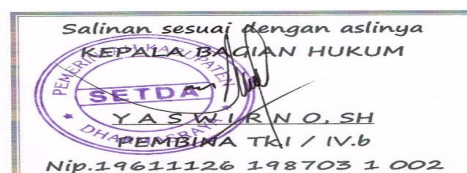 Salinan sesuai dengan aslinya
KEPALA BAGIAN HUKUM
SETDA
Y A S W I R N O, SH
PEMBINA Tk.I / IV.b
Nip.19611126 198703 1 002